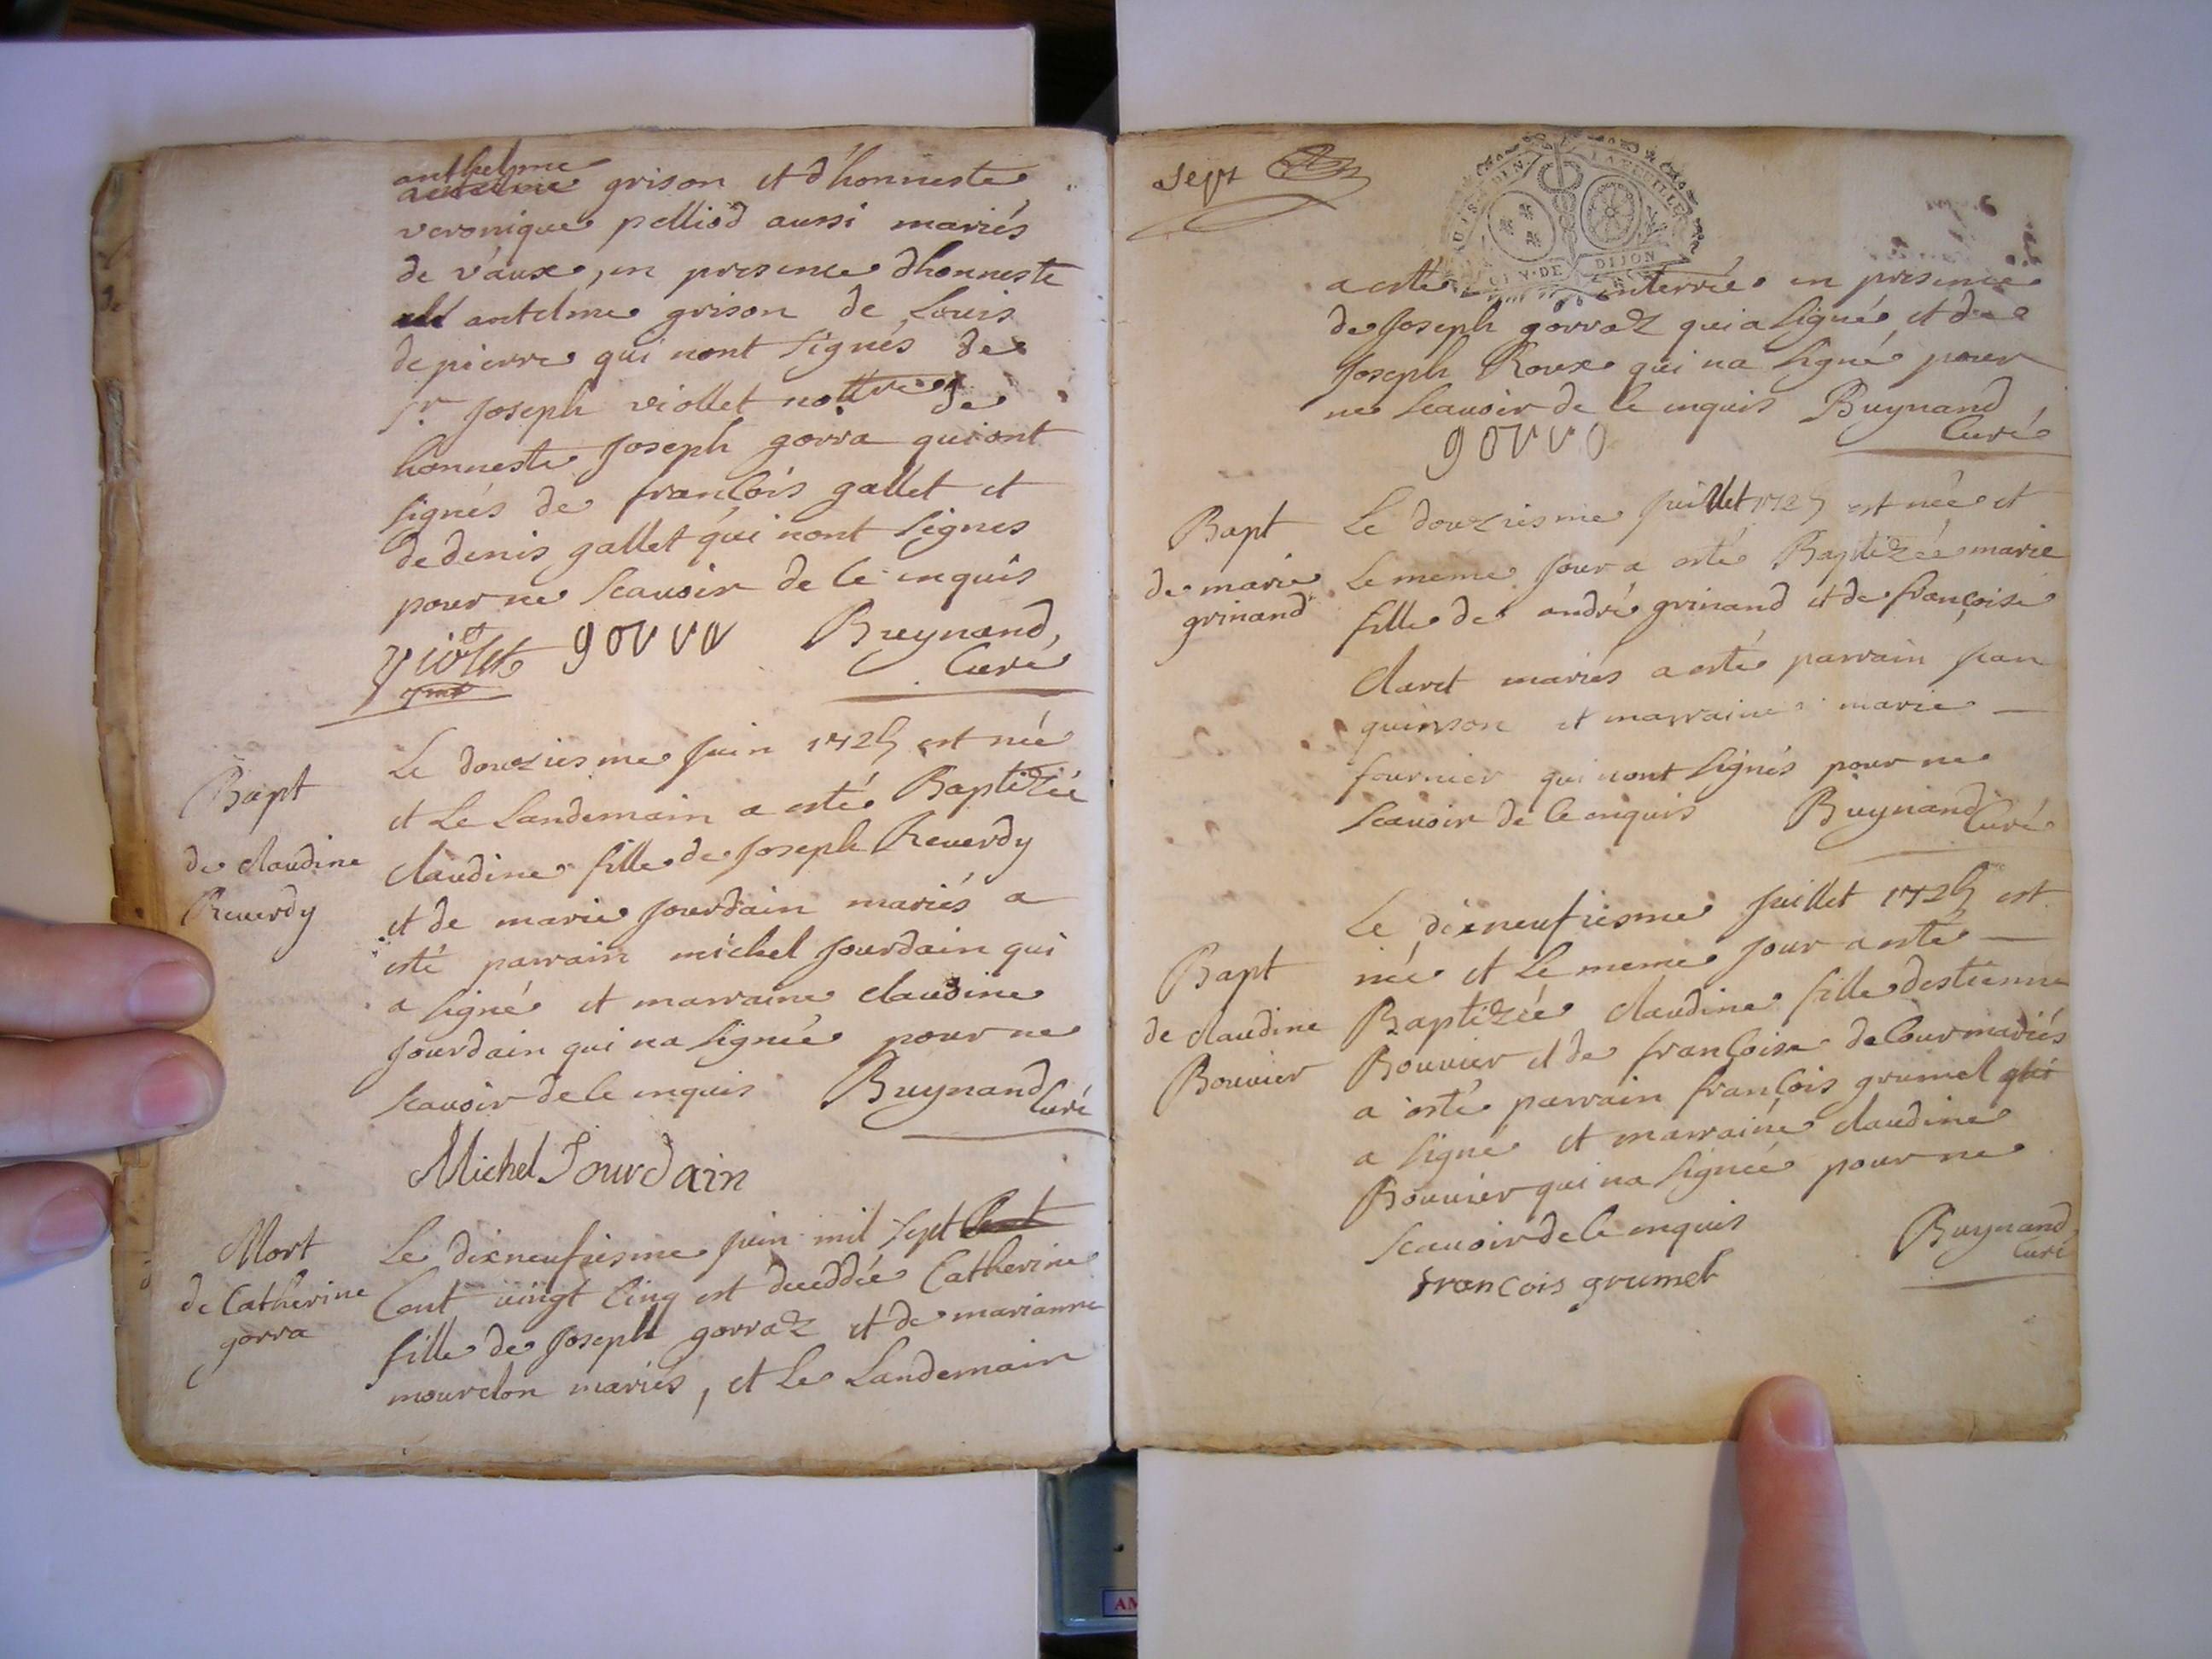 anthelme
grison et d'honneste
veronique pelliod aussi mariés
de vaux, en presence dhonneste
antelme grison de Louis
de pierre qui nont signés de
sr. Joseph viollet nottre de
honneste Joseph gorra qui ont
signés de francois gallet et
de denis gallet qui nont signes
pour ne scavoir de ce enquis
Viollet gorra Buynand,
Curé
Bapt
de claudine
Reuerdy
Le douziesme Juin 1725 est née
et Le Landemain a esté Baptizée
claudine fille de Joseph Reuerdy
et de marie Jourdain mariés a
esté parrain michel Jourdain qui
a signé et marraine claudine
Jourdain qui na signée pour ne
scauoir de ce enquis Buynand
Curé
Michel Jourdain
Mort
de Catherine
gorra
Le dixneufiesme Juin mil sept Cent
Cent vingt cinq est deceddée Catherine
fille de Joseph gorraz et de marianne
mourclon mariés, et Le Landemain
Sept
LA FEUILLE
GEN. DE DIJON
a esté enterrée en presence
de Joseph gorraz qui a signé et de
Joseph Roux qui na signé pour
ne scauoir de ce enquis Buynand
Curé
gorra
Bapt
de marie
grinand
Le douziesme Juillet 1725 est née et
Le meme Jour a esté Baptizée marie
fille de andré grinand et de françoise
Claret mariés a esté parrain Jean
quinson et marraine marie
fournier qui nont signés pour ne
scauoir de ce enquis Buynand
Curé
Bapt
de claudine
Bouvier
Le dixneufiesme Juillet 1725 est
née et Le meme Jour a esté
Baptizée claudine fille destienne
Bouvier et de francoise delour mariés
a esté parrain francois grumel qui
a signé et marraine claudine
Bouvier qui na signée pour ne
scauoir de ce enquis Buynand
Curé
francois grumel